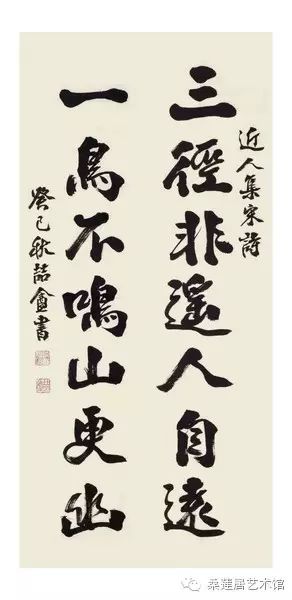 三徑非遥人自遠
近人集宋詩
一鳥不鳴山更幽
癸巳秋喆盦書
桑莲居艺术馆